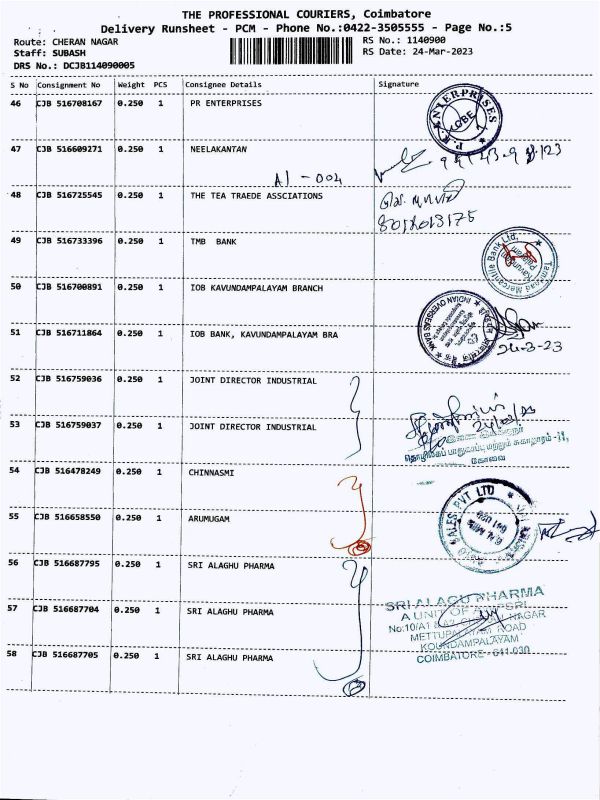 THE PROFESSIONAL COURIERS, Coimbatore
Delivery Runsheet - PCM - Phone No.:0422-3505555 - Page No.:5
Route: CHERAN NAGAR RS No.: 1140900
Staff: SUBASH RS Date: 24-Mar-2023
DRS No.: DCJB114090005
S No Consignment No Weight PCS Consignee Details Signature
46 CJB 516708167 0.250 1 PR ENTERPRISES
ENTERPRISES
47 CJB 516609271 0.250 1 NEELAKANTAN
A1 - 004
48 CJB 516725545 0.250 1 THE TEA TRAEDE ASSCIATIONS
49 CJB 516733396 0.250 1 TMB BANK
Tamilnad Mercantile Bank Ltd.
50 CJB 516700891 0.250 1 IOB KAVUNDAMPALAYAM BRANCH
INDIAN OVERSEAS BANK
51 CJB 516711864 0.250 1 IOB BANK, KAVUNDAMPALAYAM BRA
24-3-23
52 CJB 516759036 0.250 1 JOINT DIRECTOR INDUSTRIAL
53 CJB 516759037 0.250 1 JOINT DIRECTOR INDUSTRIAL
தொழிலகப் பாதுகாப்பு மற்றும் சுகாதாரம் -II,
கோவை
54 CJB 516478249 0.250 1 CHINNASMI
SALES PVT LTD
55 CJB 516658550 0.250 1 ARUMUGAM
56 CJB 516687795 0.250 1 SRI ALAGHU PHARMA
57 CJB 516687704 0.250 1 SRI ALAGHU PHARMA
SRI ALAGU PHARMA
A UNIT OF
No:10/A1 NAGAR
METTUPALAYAM ROAD
KOUNDAMPALAYAM
COIMBATORE - 641 030
58 CJB 516687705 0.250 1 SRI ALAGHU PHARMA